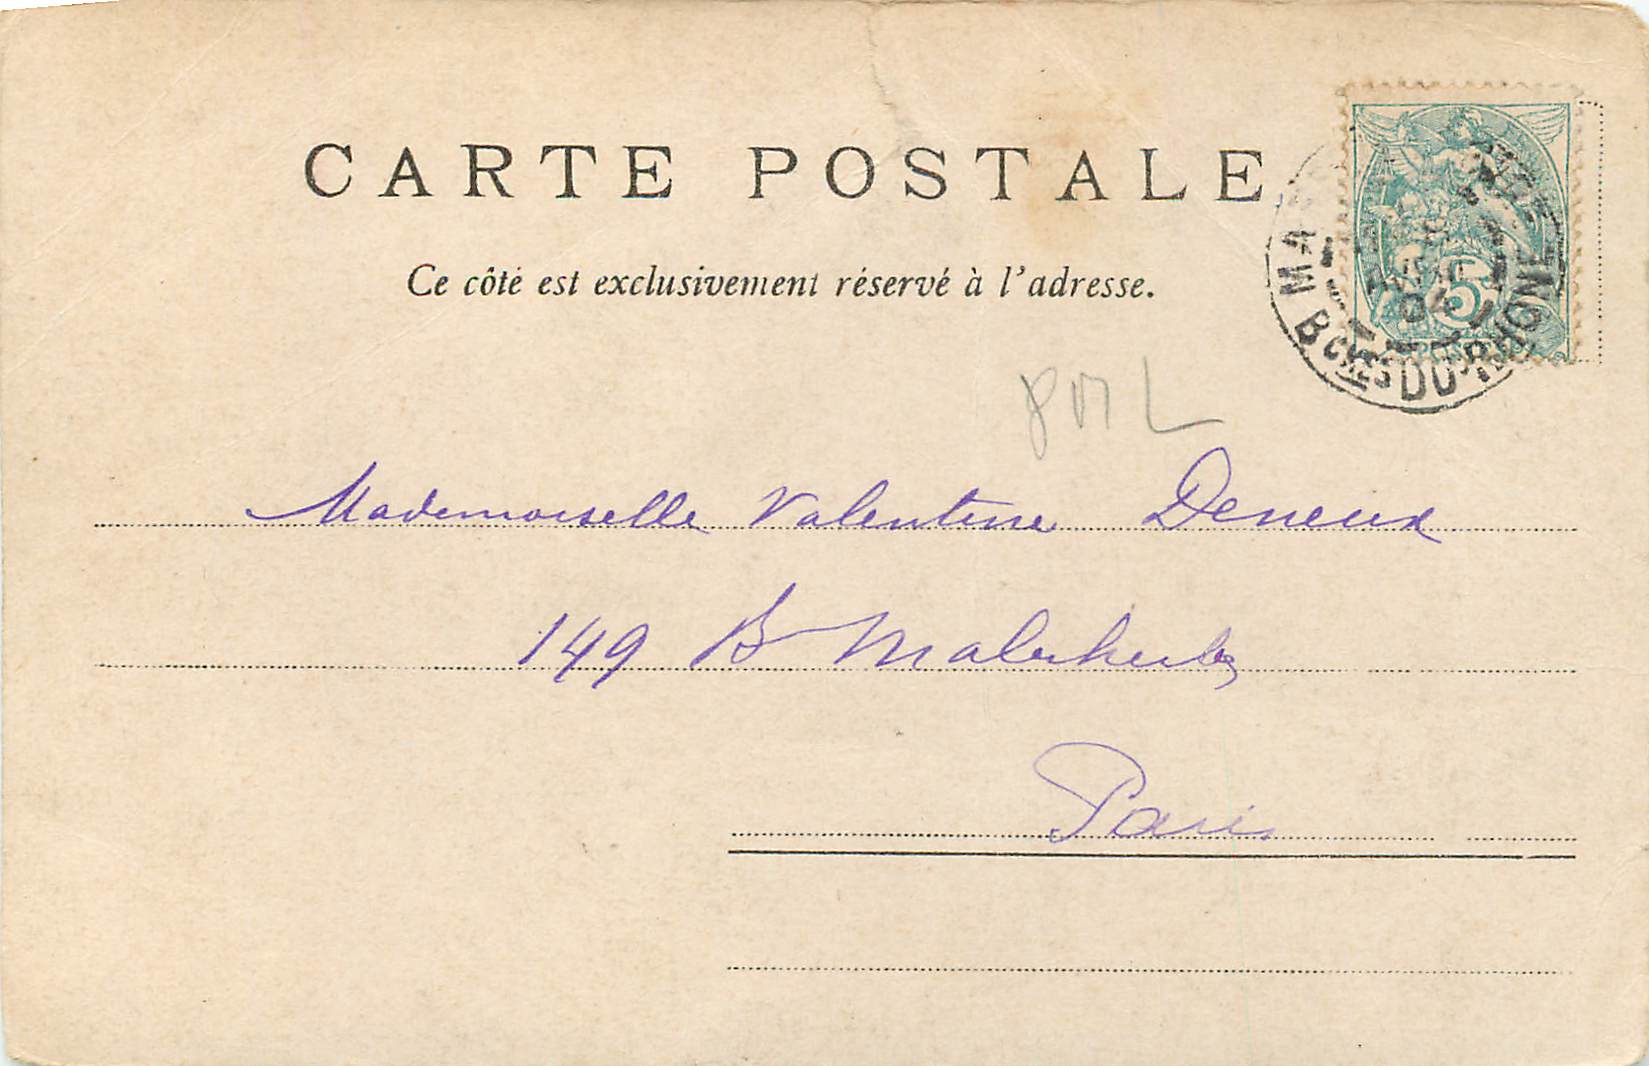 CARTE POSTALE
Ce côté est exclusivement réservé à l'adresse.
5
04
BCHES DU RHONE
Mademoiselle Valentine Deneux
149 B Malesherbes
Paris